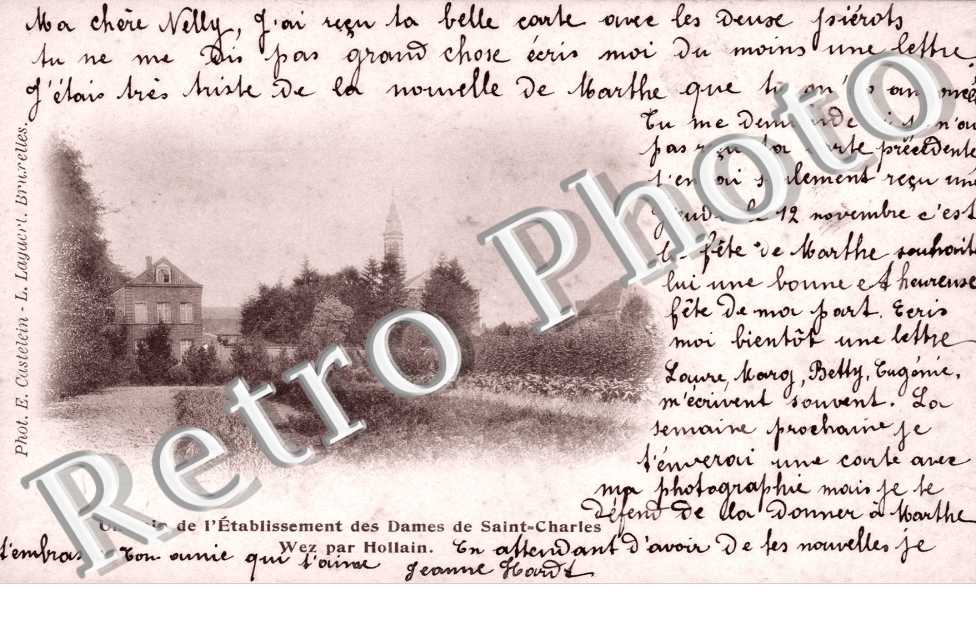 Ma chère Nelly, J'ai reçu ta belle carte avec les deuse piérots
tu ne me Dis pas grand chose écris moi du moins une lettre
J'étais très triste de la nouvelle de Marthe que tu
Tu me demande si tu n'
pas reçu ta carte précédente
seulement reçu une
Jeudi le 12 novembre c'est
la fête de Marthe souhaite
lui une bonne et heureuse
fête de ma part. Ecris
moi bientôt une lettre
Laure, Marg, Betty, Eugénie,
m'écrivent souvent. La
semaine prochaine je
t'enverai une carte avec
ma photographie mais je te
défend de la donner à Marthe
En attendant d'avoir de tes nouvelles je
t'embrasse Ton amie qui t'aime
Jeanne
Phot. E. Castelein - L. Lagaert. Bruxelles.
de l'Établissement des Dames de Saint-Charles
Wez par Hollain.
Retro Photo